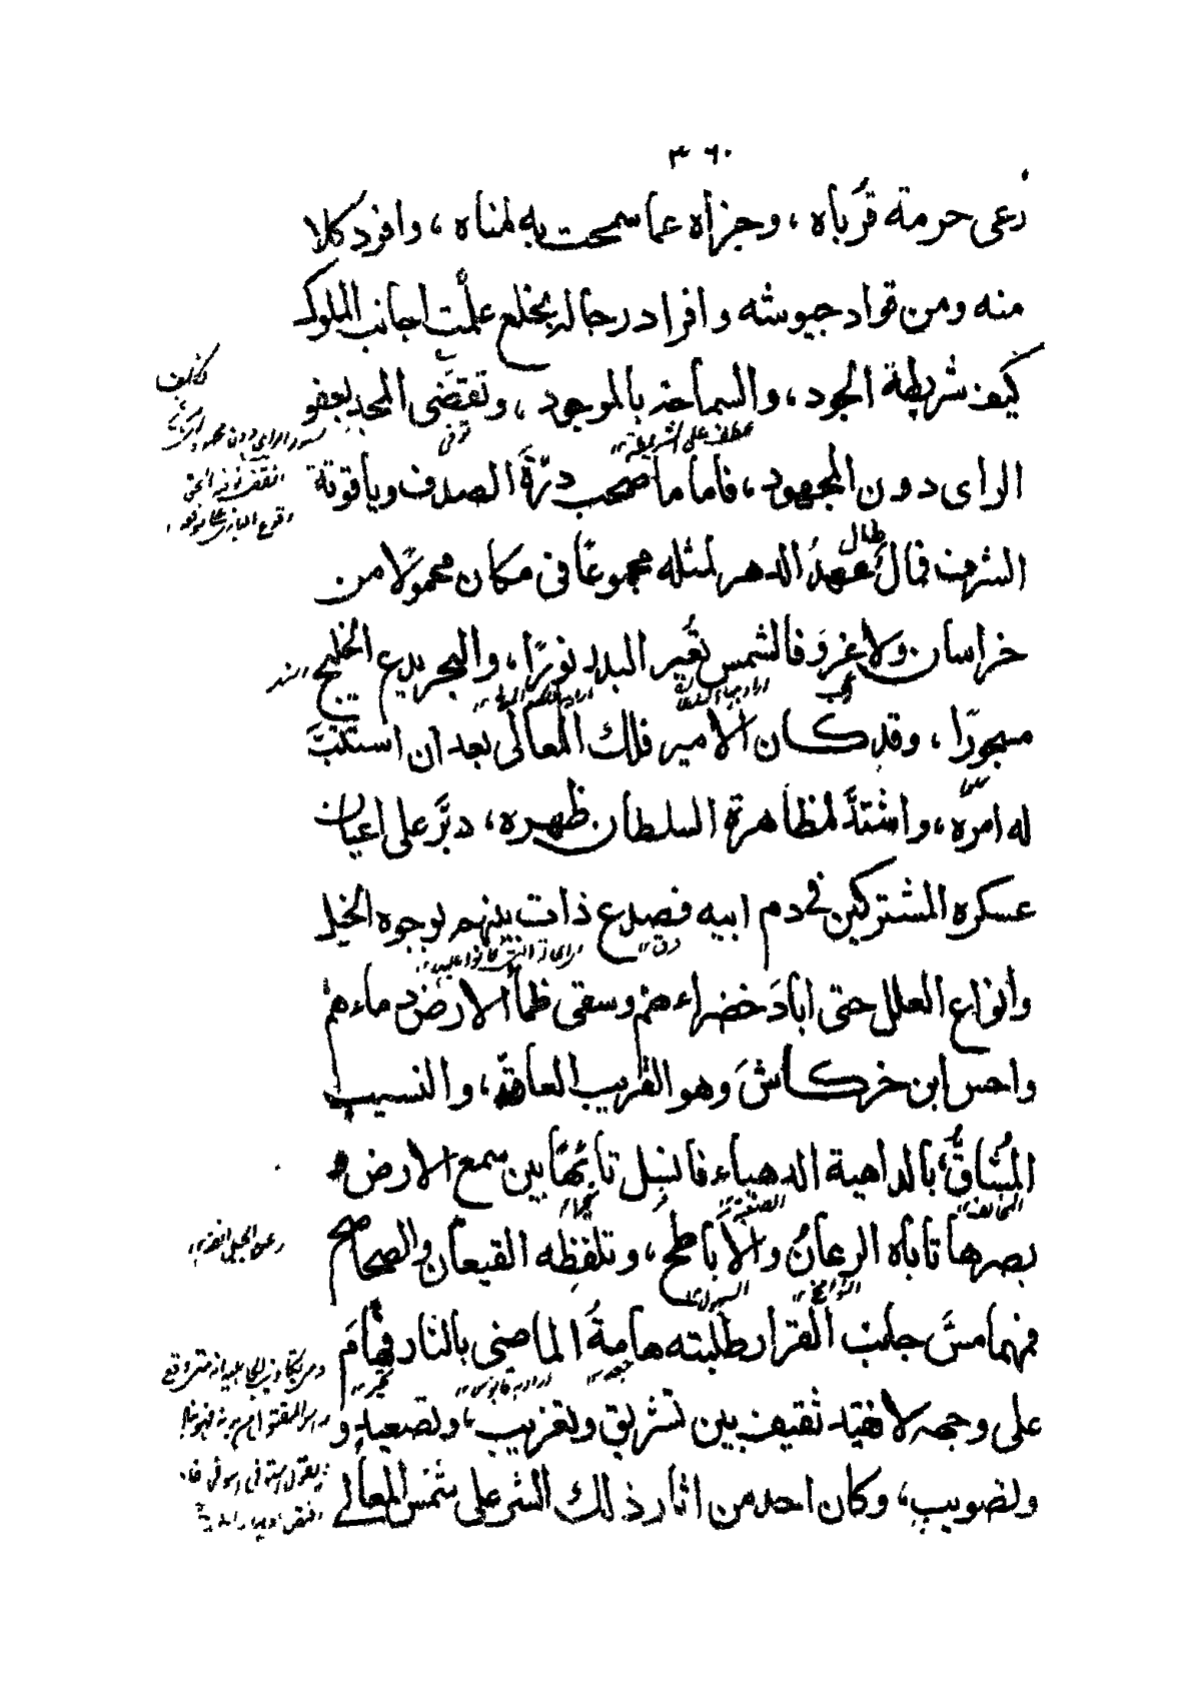 ٣٦٠
رعى حرمة قرباه ، وجزاه عما سمحت به يمناه ، وافرد كلا
منه ومن قواد جيوشه وافراد رجاله بخلع علمت اجانب الملوك
كيف شريطة الجود ، والسماحة بالموجود ، وتقتضى المجد بعفو
الراى دون المجهود ، فاما ما صحب درّة الصدف وياقوتة
الشرف فمال طال عهدُ الدهر لمثله مجموعًا فى مكان محمولًا من
خراسان ولا غروَ فالشمس تُعير البدر نورًا ، والبحر يدع الخليج
مسجورًا ، وقد كان الامير فلك المعالى بعد ان استتبَّ
له امره ، واشتدَّ لمظاهرة السلطان ظهره ، دبَّر على اعيان
عسكره المشتركين فى دم ابيه فصدع ذات بينهم بوجوه الحيل
وانواع العلل حتى ابادَ خضراءهم وسقى ظمأ الارض دماءهم
واحس ابن خركاشَ وهو القريب العاقّ ، والنسيب
المُشاقُّ ، بالداهية الدهياء فانسل تائهًا بين سمع الارض و
بصرها تاباه الرعانُ والأباطح ، وتلفظه القيعان والصحاصح
فمهما مسَّ جانب القرار طلبته هامةُ الماضى بالثار فهَامَ
على وجهه لا فقيد ثقيف بين تشريق وتغريب ، وتصعيد و
وتصويب ، وكان احد من اثار ذلك الشر على شمس المعالى